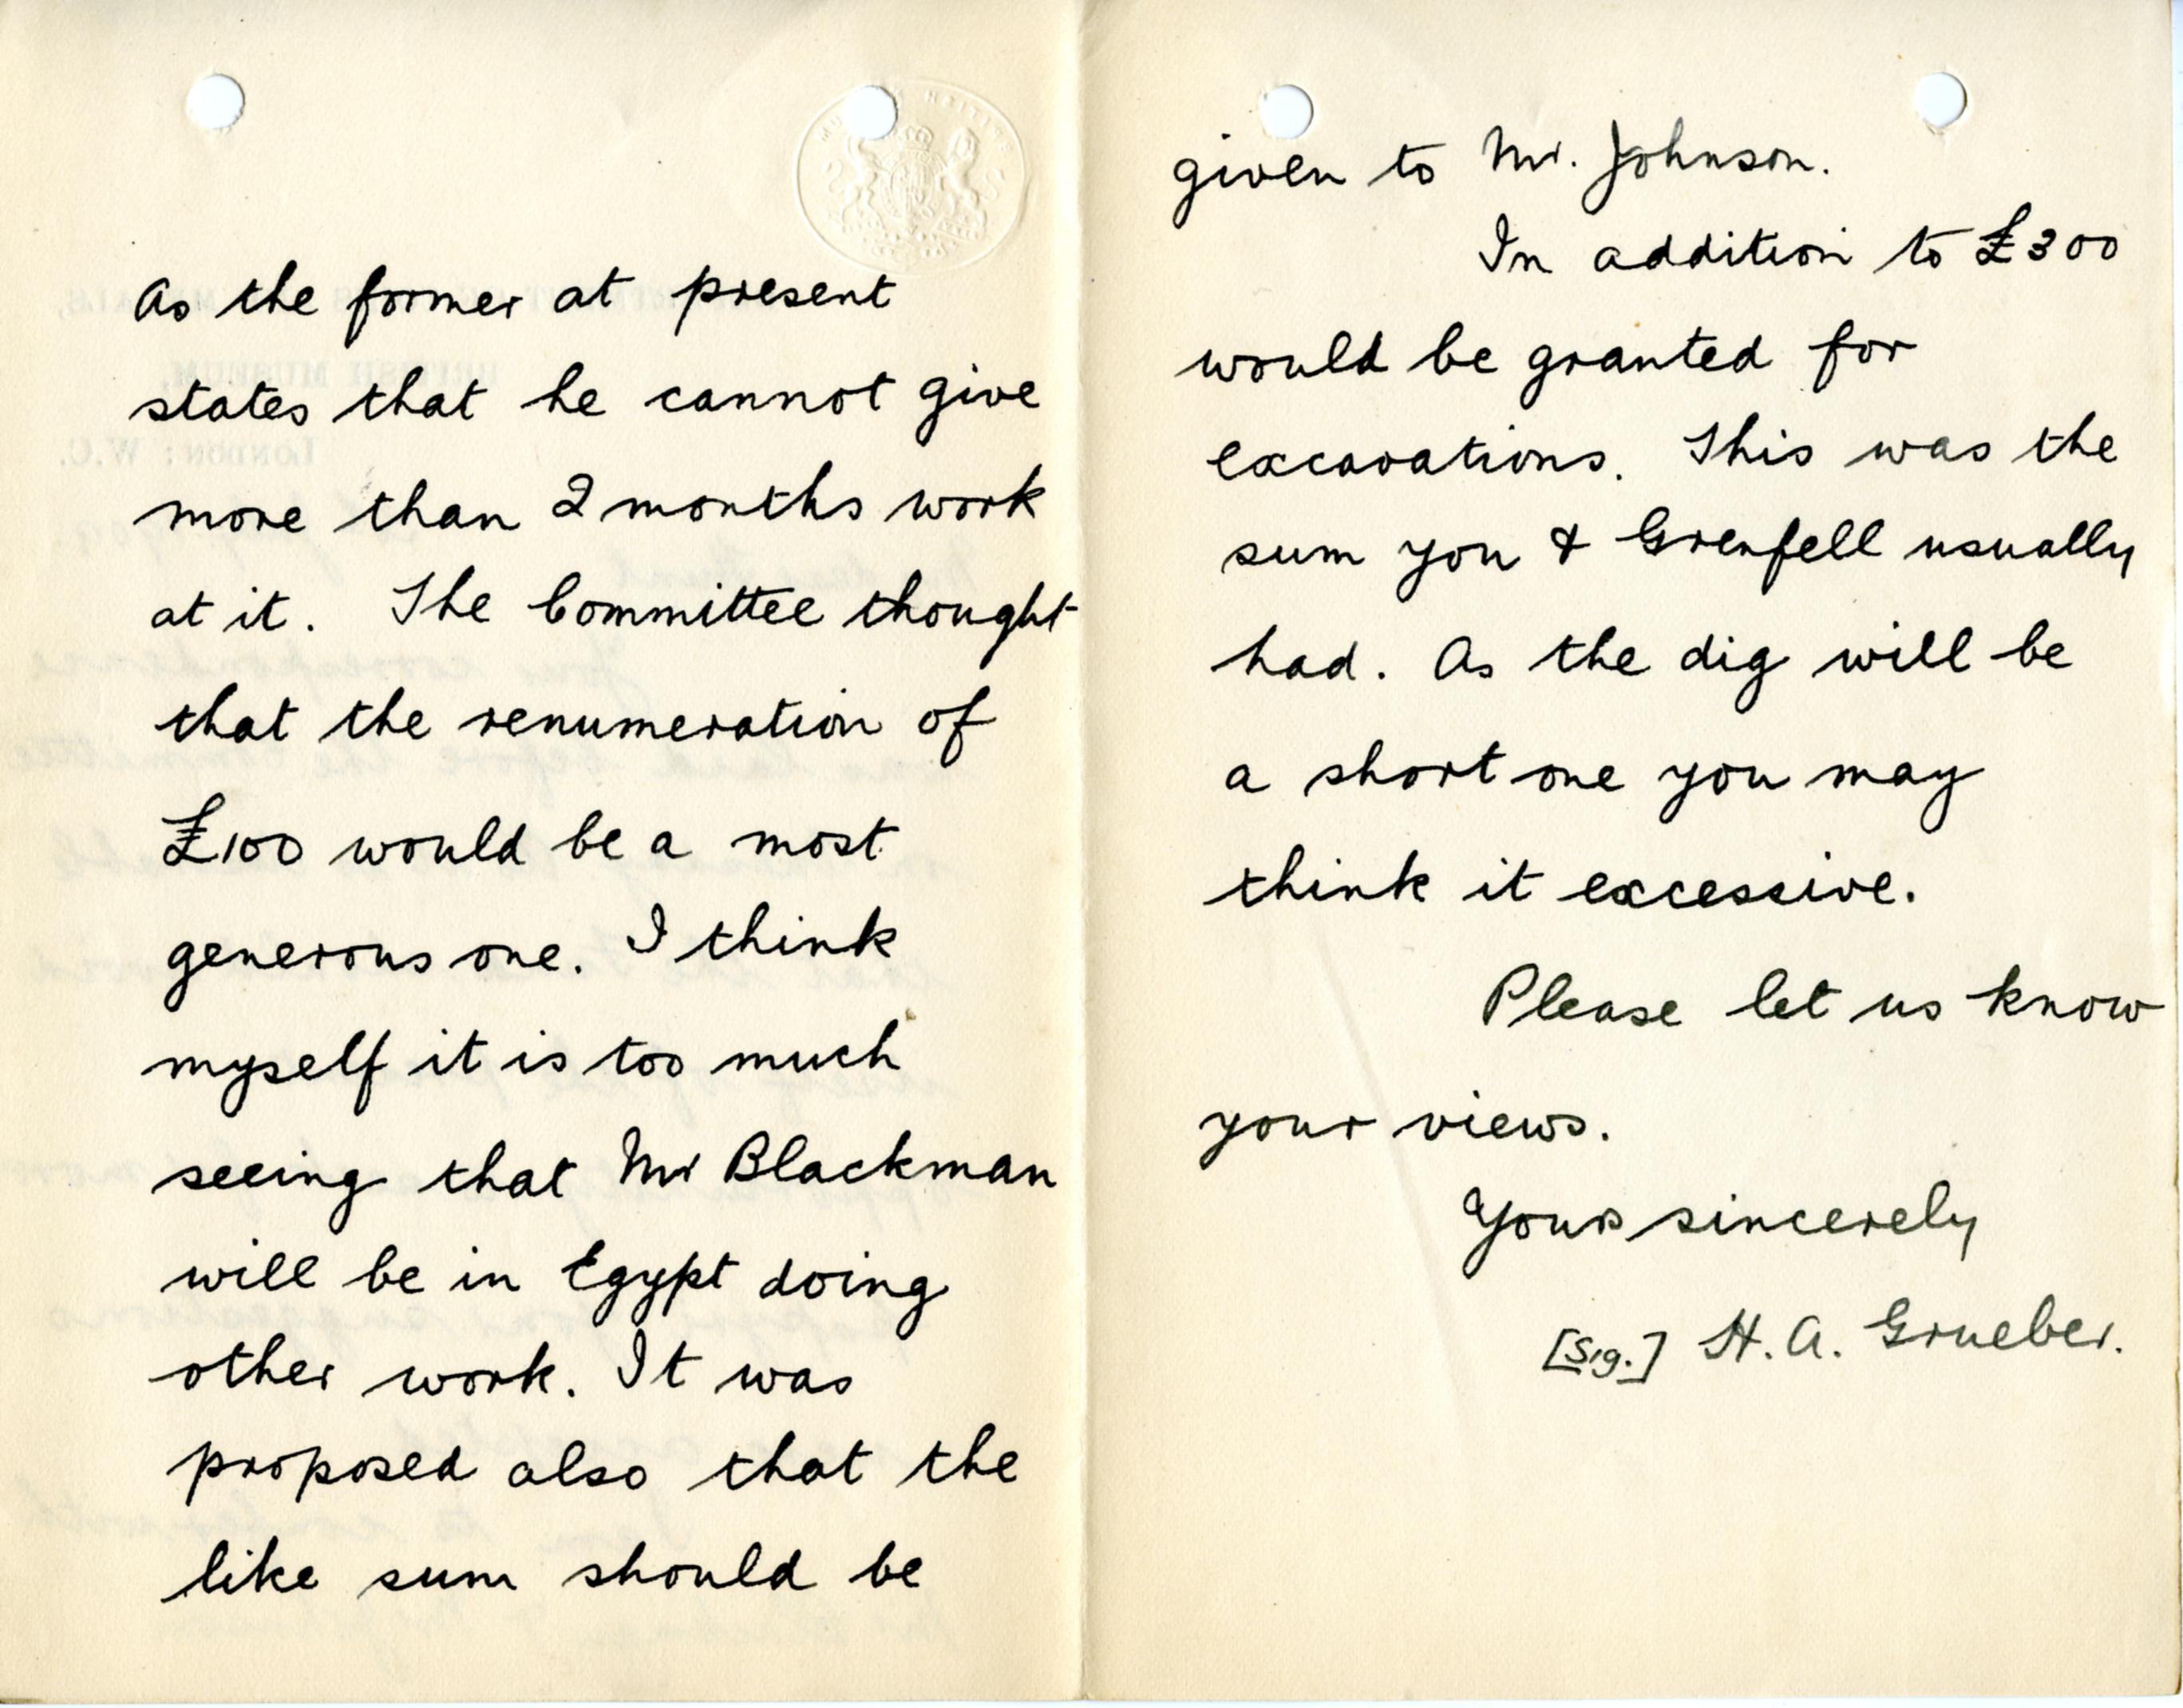 As the former at present
states that he cannot give
more than 2 months work
at it. The Committee thought
that the renumeration of
£100 would be a most
generous one. I think
myself it is too much
seeing that Mr Blackman
will be in Egypt doing
other work. It was
proposed also that the
like sum should be
given to Mr. Johnson.
In addition to £300
would be granted for
excavations. This was the
sum you & Grenfell usually
had. As the dig will be
a short one you may
think it excessive.
Please let us know
your views.
Yours sincerely
[Sig.] H. A. Grueber.